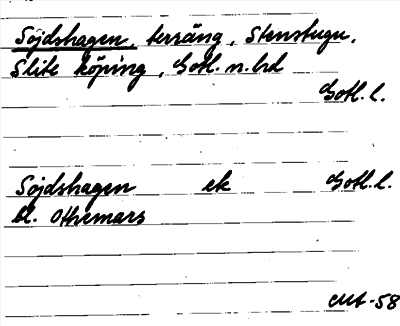 Söjdshagen, terräng, Stenstugu,
Slite köping, Gotl. n. hd
Gotl. l.
Söjdshagen ek Gotl. l.
bl. Othemars
-58